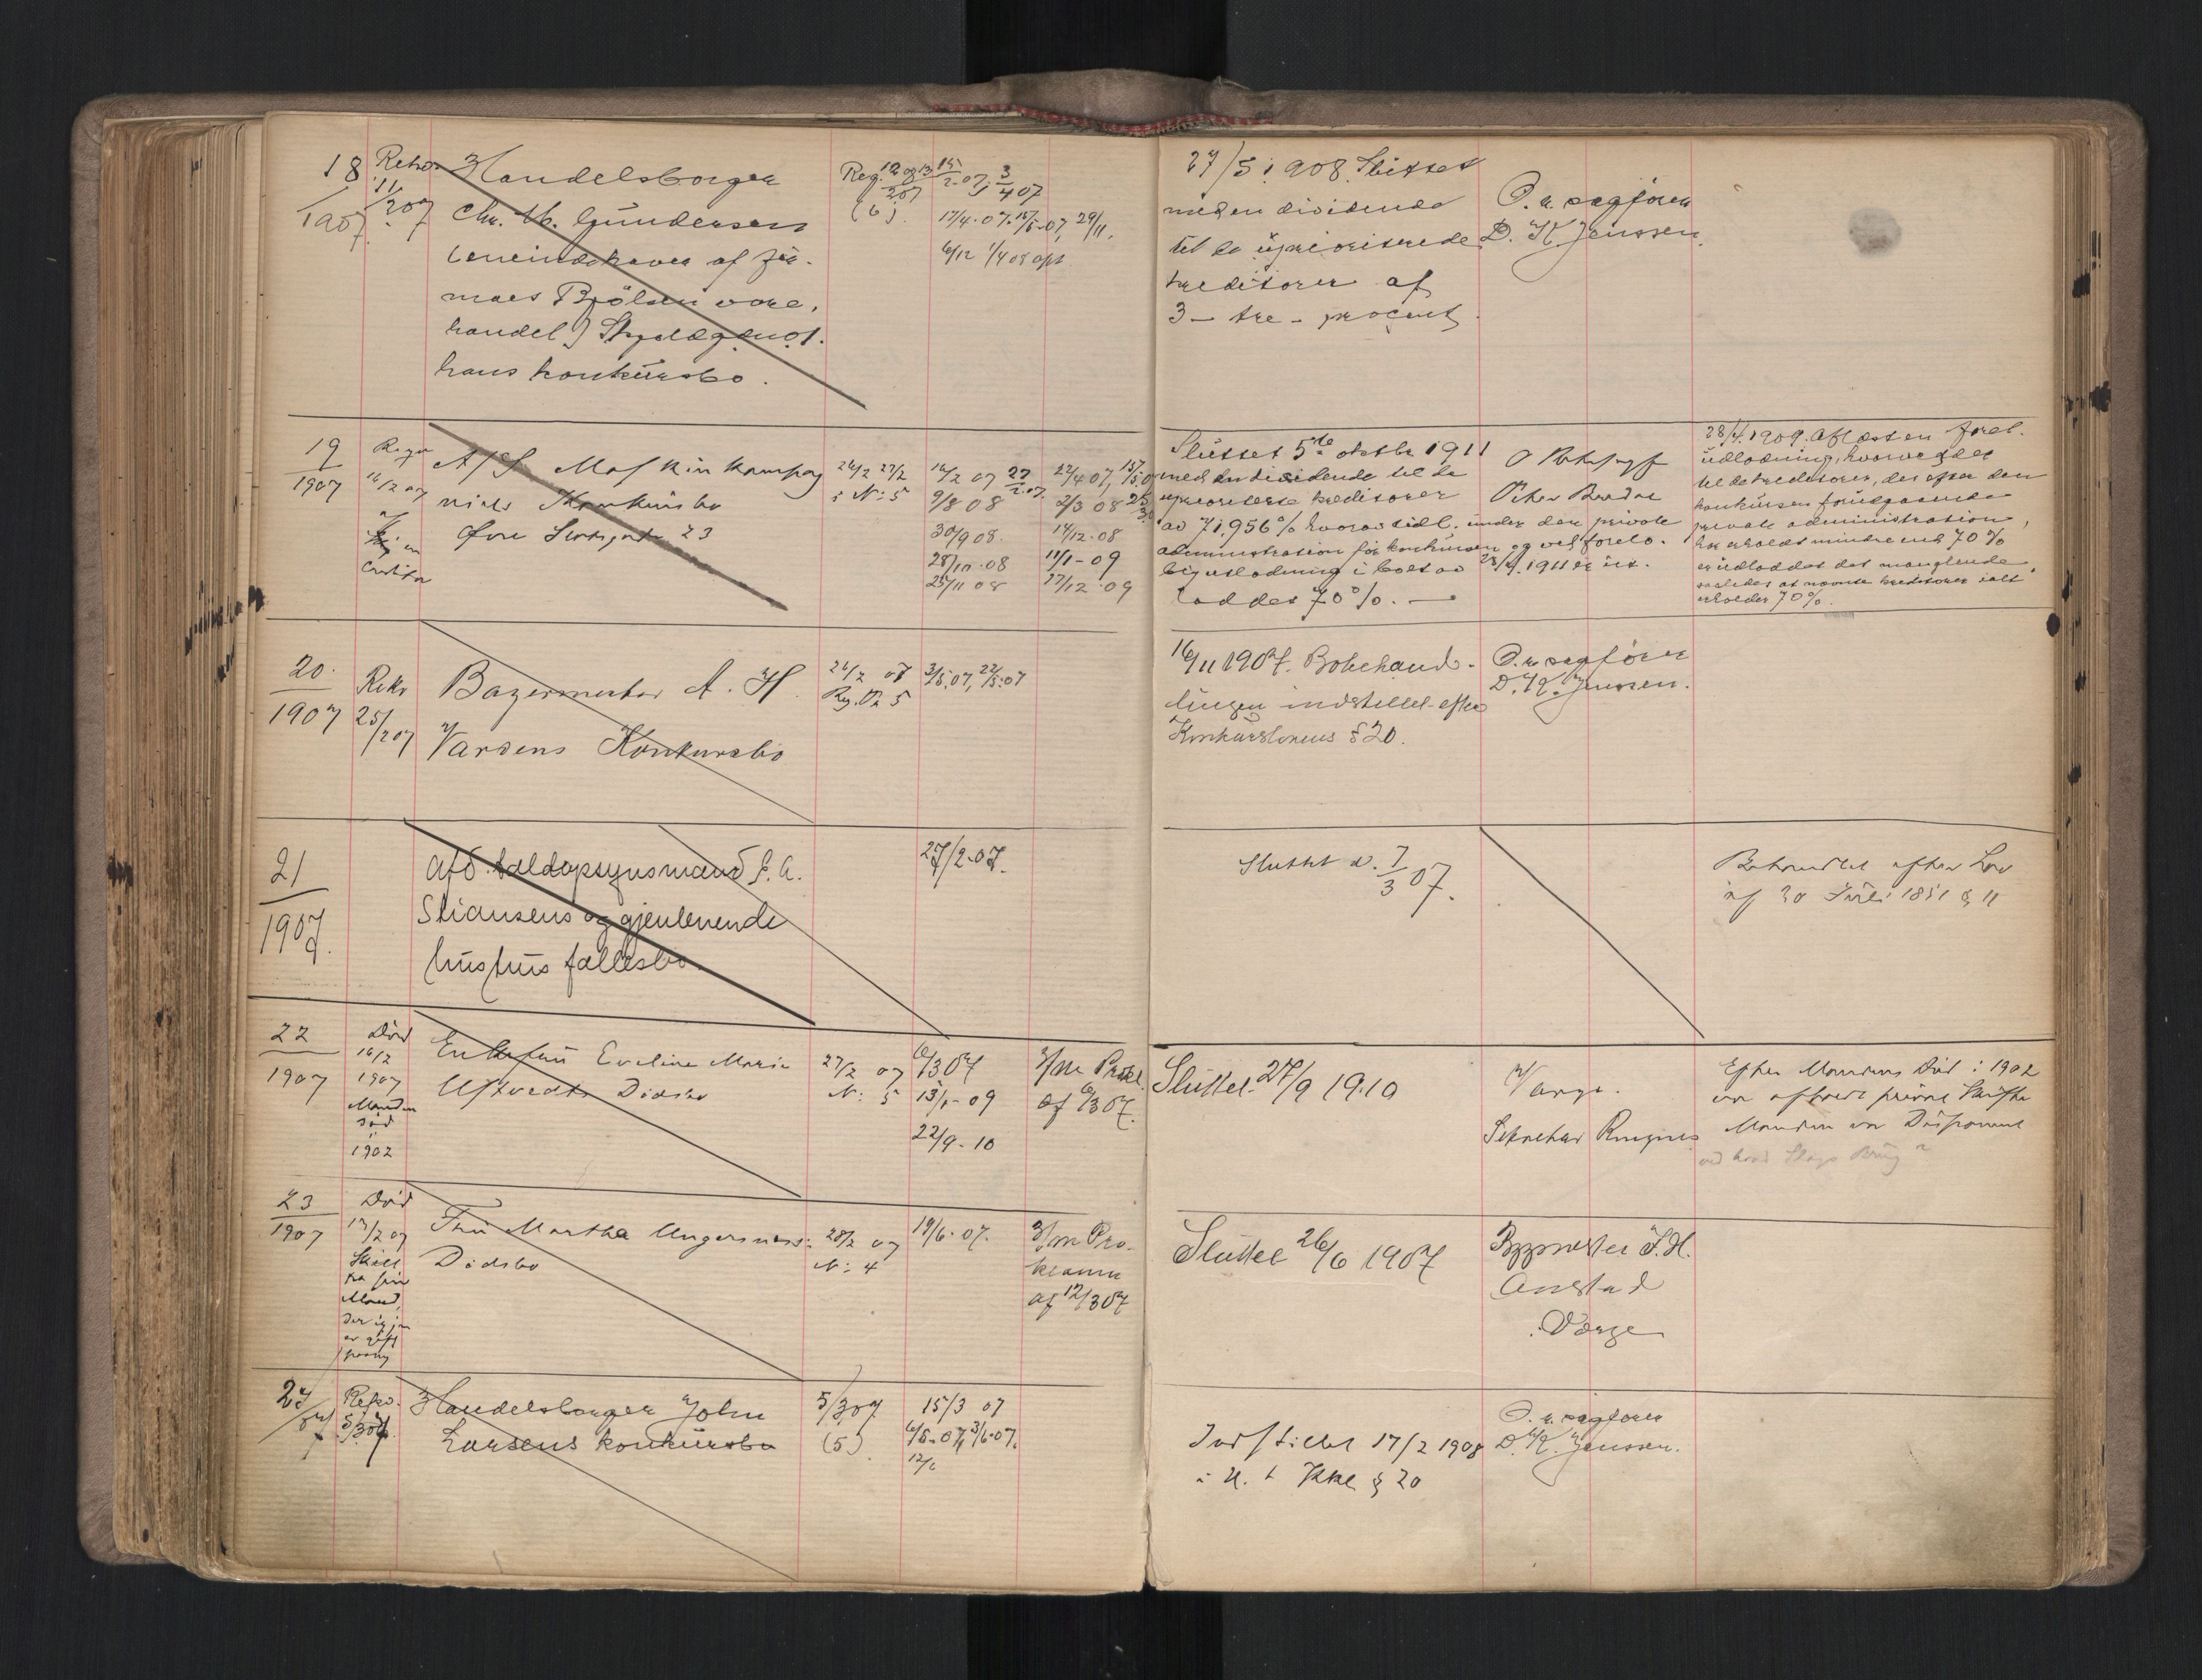 18
1907
Rekv.
11/2 07
Handelsborger
Chr. M. Gundersen
(eneindehaver af fir-
maet Bjölsen vare,
handel)
hans konkursbo.
Reg. 12 og 13
2 07
(6)
15/2.07, 3/4 07
17/4.07. 15/5.07, 29/11.
6/12 1/4 08
27/5 1908. Sluttet
med en dividende
til de upriviterede
kreditorer af
3 - tre - procent
O.r. sagförer
D. K. Jenssen.
19
1907
16/2 07
A/S Maskinkompag
niets Konkursbo
Øvre Slotsgade 23
26/2 27/2
N: 5
16/2 07 27/2.07.
9/8 08
30/9 08.
28/10.08
25/11 08
22/4 07,
2/3 08
14/12.08
11/1-09
17/12.09
Sluttet 5te oktbr 1911
med en dividende til de
kreditorer
av 71,956% hvorav tidl. under den private
administration før konkursen og ved forelø-
big utlodning i boet av 28/4. 1911 er ut-
loddet 70%.
28/4. 1909. Aflæst en forel.
udlodning, hvorved der
til de kreditorer, der efter den
konkursen forudgaaende
private administration,
har erholdt mindre end 70%
er udloddet det manglende,
saaledes at nævnte kreditorer ialt
erholder 70%.
20.
1907
Rekv
25/2 07
Bagermester A. H.
Vardens Konkursbo
26/2 07
Reg. No 5
3/5.07, 22/5.07
16/11 1907. Bobehand-
lingen indstillet efter
Konkurslovens § 20.
O.r. sagförer
D. K. Jenssen.
21
1907.
Afd. toldopsynsmand
Stiansens og gjenlevende
hustrus fællesbo.
27/2.07.
Sluttet d. 7/3 07.
Behandlet efter Lov
af 30 Juli 1851 § 11
22
1907
Död
16/2
1907
Manden
död
i
1902
Enkefru Eveline Marie
Uftvedts Dödsbo
27/2 07
N: 5
6/3 07
13/1-09
22/9-10
3/m Prokl.
af 6/3 07.
Sluttet 27/9 1910
Værge.
Sekretær Ringnes
Efter Mandens Död i 1902
Manden var Disponent
23
1907
Död
17/2 07
Skilt
fra sin
Mand,
der igjen
er gift
Fru Martha
Dödsbo
28/2 07
N: 4
19/6.07.
3/m Pro-
klama
af 12/3 07
Sluttet 26/6 1907
Byggmester J. H.
Onstad
Værge
24
07
Rekv.
5/3 07.
Handelsborger John
Larsens konkursbo
5/3 07
(5)
15/3 07
6/5-07, 3/6-07.
12/6
Indstillet 17/2 1908
i H. t Kkl § 20
O.r. sagfører
D. K. Jenssen.